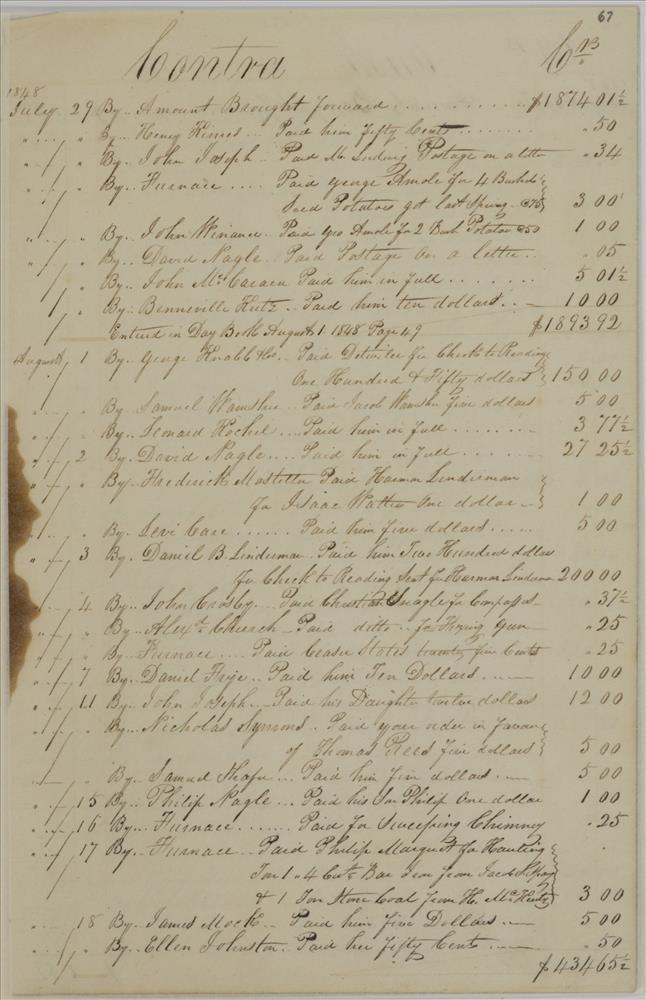 67
Contra Cr
1848
July 29 By.. Amount Brought forward .......... $1874 01½
" " By.. Henry Himes... Paid him fifty Cents ........ " 50
" " By.. John Joseph.. Paid Mr Ludwig Postage on a letter " 34
" " By.. Furnace .... Paid George Amole for 4 Bushels
Seed Potatoes got last Spring @75 3 00
" " By.. John Winance.. Paid Geo Amole for 2 Bush Potatoes @50 1 00
" " By.. David Nagle.. Paid Postage on a letter .. " 05
" " By.. John Paid him in full ....... 5 01½
" " By.. Benneville Paid him ten dollars .. 10 00
Entered in Day Book August 1. 1848 Page 49 $1893 92
August 1 By.. George Knabb & Co.. Paid Detwiler for Check to Reading
One Hundred & Fifty dollars 150 00
" " By.. Samuel Wamsher.. Paid Jacob Wamsher five dollars 5 00
" " By.. Leonard Hochel.... Paid him in full ........ 3 77½
" 2 By.. David Nagle.... Paid him in full ....... 27 25½
" " By.. Frederick Mosteller Paid Harmon Linderman
for Isaac Watters One dollar 1 00
" " By.. Levi Care ...... Paid him five dollars ..... 5 00
" 3 By.. Daniel B. Linderman.. Paid him Two Hundred dollars
for Check to Reading Sent for Harmon Linderman 200 00
" 4 By.. John Crosby.... Paid Nagle for Compasses " 37½
" " By.. Alexdr Church.. Paid ditto .. for Fixing Gun " 25
" " By.. Furnace .... Paid Ceasar States twenty five Cents " 25
" 7 By.. Daniel Frije.. Paid him Ten Dollars ..... 10 00
" 11 By.. John Joseph.. Paid his Daughter twelve dollars 12 00
" " By.. Nicholas Symons.. Paid your order in favour
of Thomas Rees five dollars 5 00
" " By.. Samuel Shafer ... Paid him five dollars .. 5 00
" 15 By.. Philip Nagle ... Paid his Son Philip One dollar 1 00
" 16 By.. Furnace ....... Paid for Sweeping Chimney " 25
" 17 By.. Furnace .. Paid Philip Marquett for Hauling
Ton 1 " 4 Cwts Bar Iron from Jacob
& 1 Ton Stone Coal from H. 3 00
" 18 By.. James Mock.. Paid him five Dollars .. 5 00
" " By.. Ellen Johnston.. Paid her fifty Cents .. " 50
$434 65½